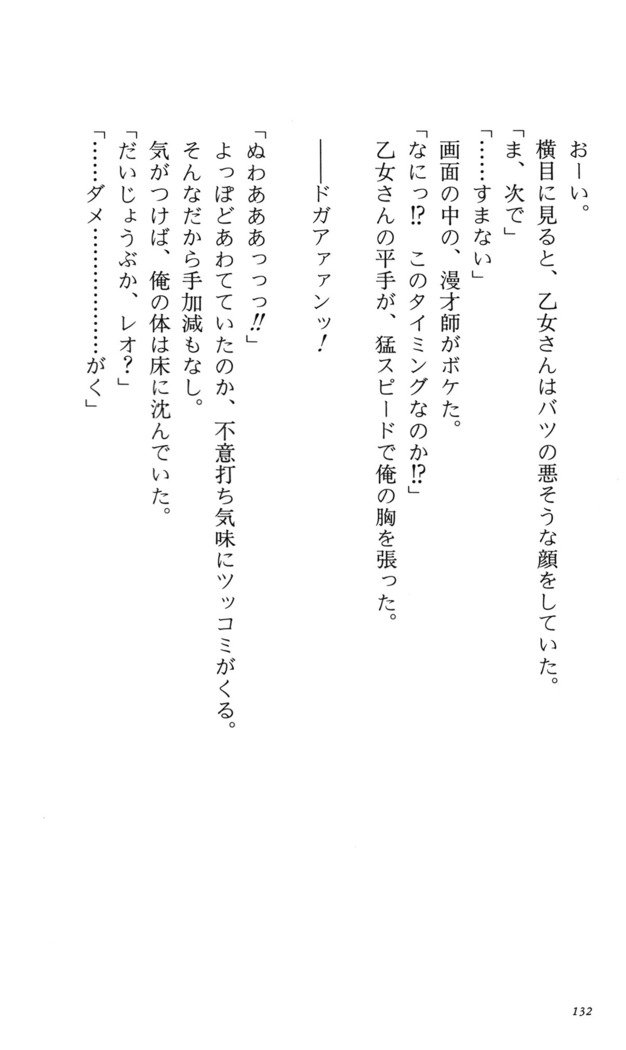 おーい。
横目に見ると、乙女さんはバツの悪そうな顔をしていた。
「ま、次で」
「……すまない」
画面の中の、漫才師がボケた。
「なにっ!?　このタイミングなのか!?」
乙女さんの平手が、猛スピードで俺の胸を張った。
――ドガアァァンッ！
「ぬわあああっっっ!!」
よっぽどあわてていたのか、不意打ち気味にツッコミがくる。
そんなだから手加減もなし。
気がつけば、俺の体は床に沈んでいた。
「だいじょうぶか、レオ？」
「……ダメ………………がく」
132